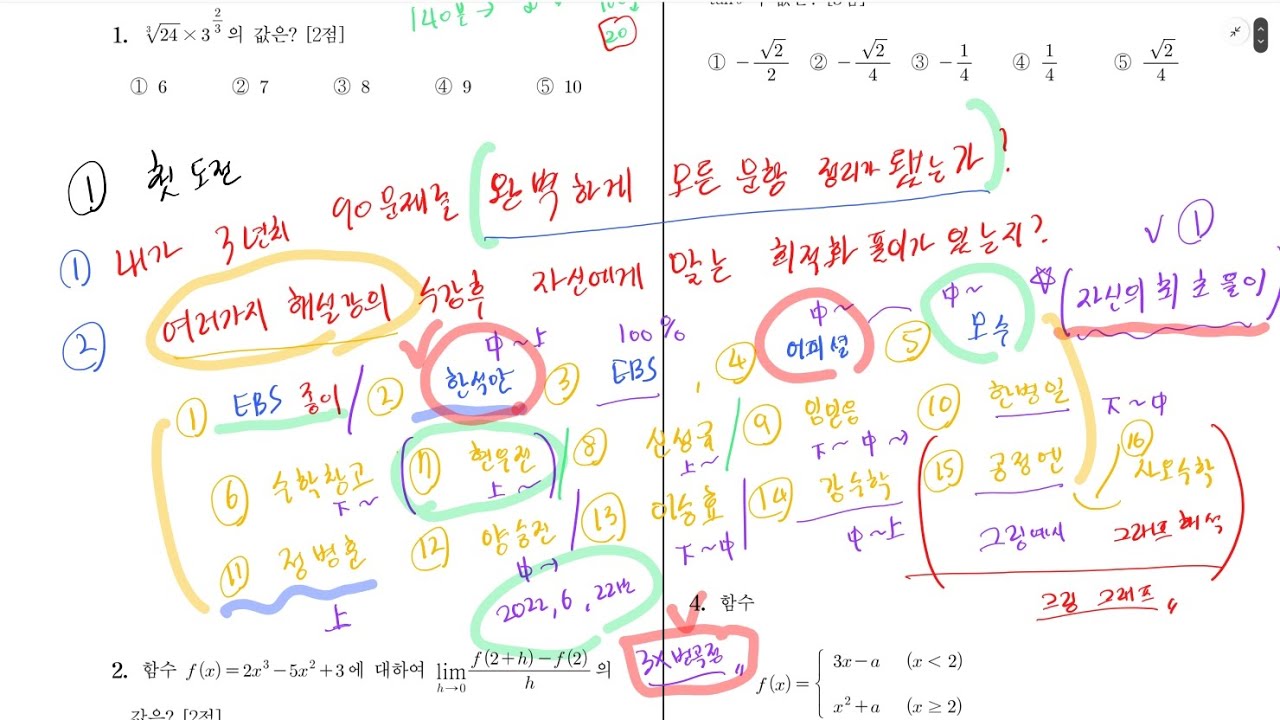 1. ∛24 × 3^(2/3) 의 값은? [2점]
① 6 ② 7 ③ 8 ④ 9 ⑤ 10
140분 →
20
① -√2/2 ② -√2/4 ③ -1/4 ④ 1/4 ⑤ √2/4
① 첫 도전
① 내가 3년치 90문제를 완벽하게 모든 문항 정리가 됐는가?
② 여러가지 해설강의 수강후 자신에게 맞는 최적화 풀이가 있는지?
✓ ①
(자신의 최초 풀이)
① EBS 종이 / ② 한석만 中~上 ③ EBS 100% ④ 어피셜 中~ ⑤ 모수 中~
⑥ 수학창고 下~ ⑦ 현우진 上~ ⑧ 신성균 上~ ⑨ 임민웅 下~中→ ⑩ 한병일 下~中
⑪ 정병훈 上 ⑫ 양승진 中→ ⑬ 이승효 下~中 ⑭ 강수학 中~上 ⑮ 공정엔 ⑯ 샤모수학
그림예시 그래프 해석
그림 그래프 〃
2022, 6, 22번
3차 변곡점 〃
2. 함수 f(x)=2x³-5x²+3에 대하여 lim h→0 (f(2+h)-f(2))/h 의
값은? [2점]
4. 함수
f(x)= { 3x-a (x<2)
x²+a (x≥2)